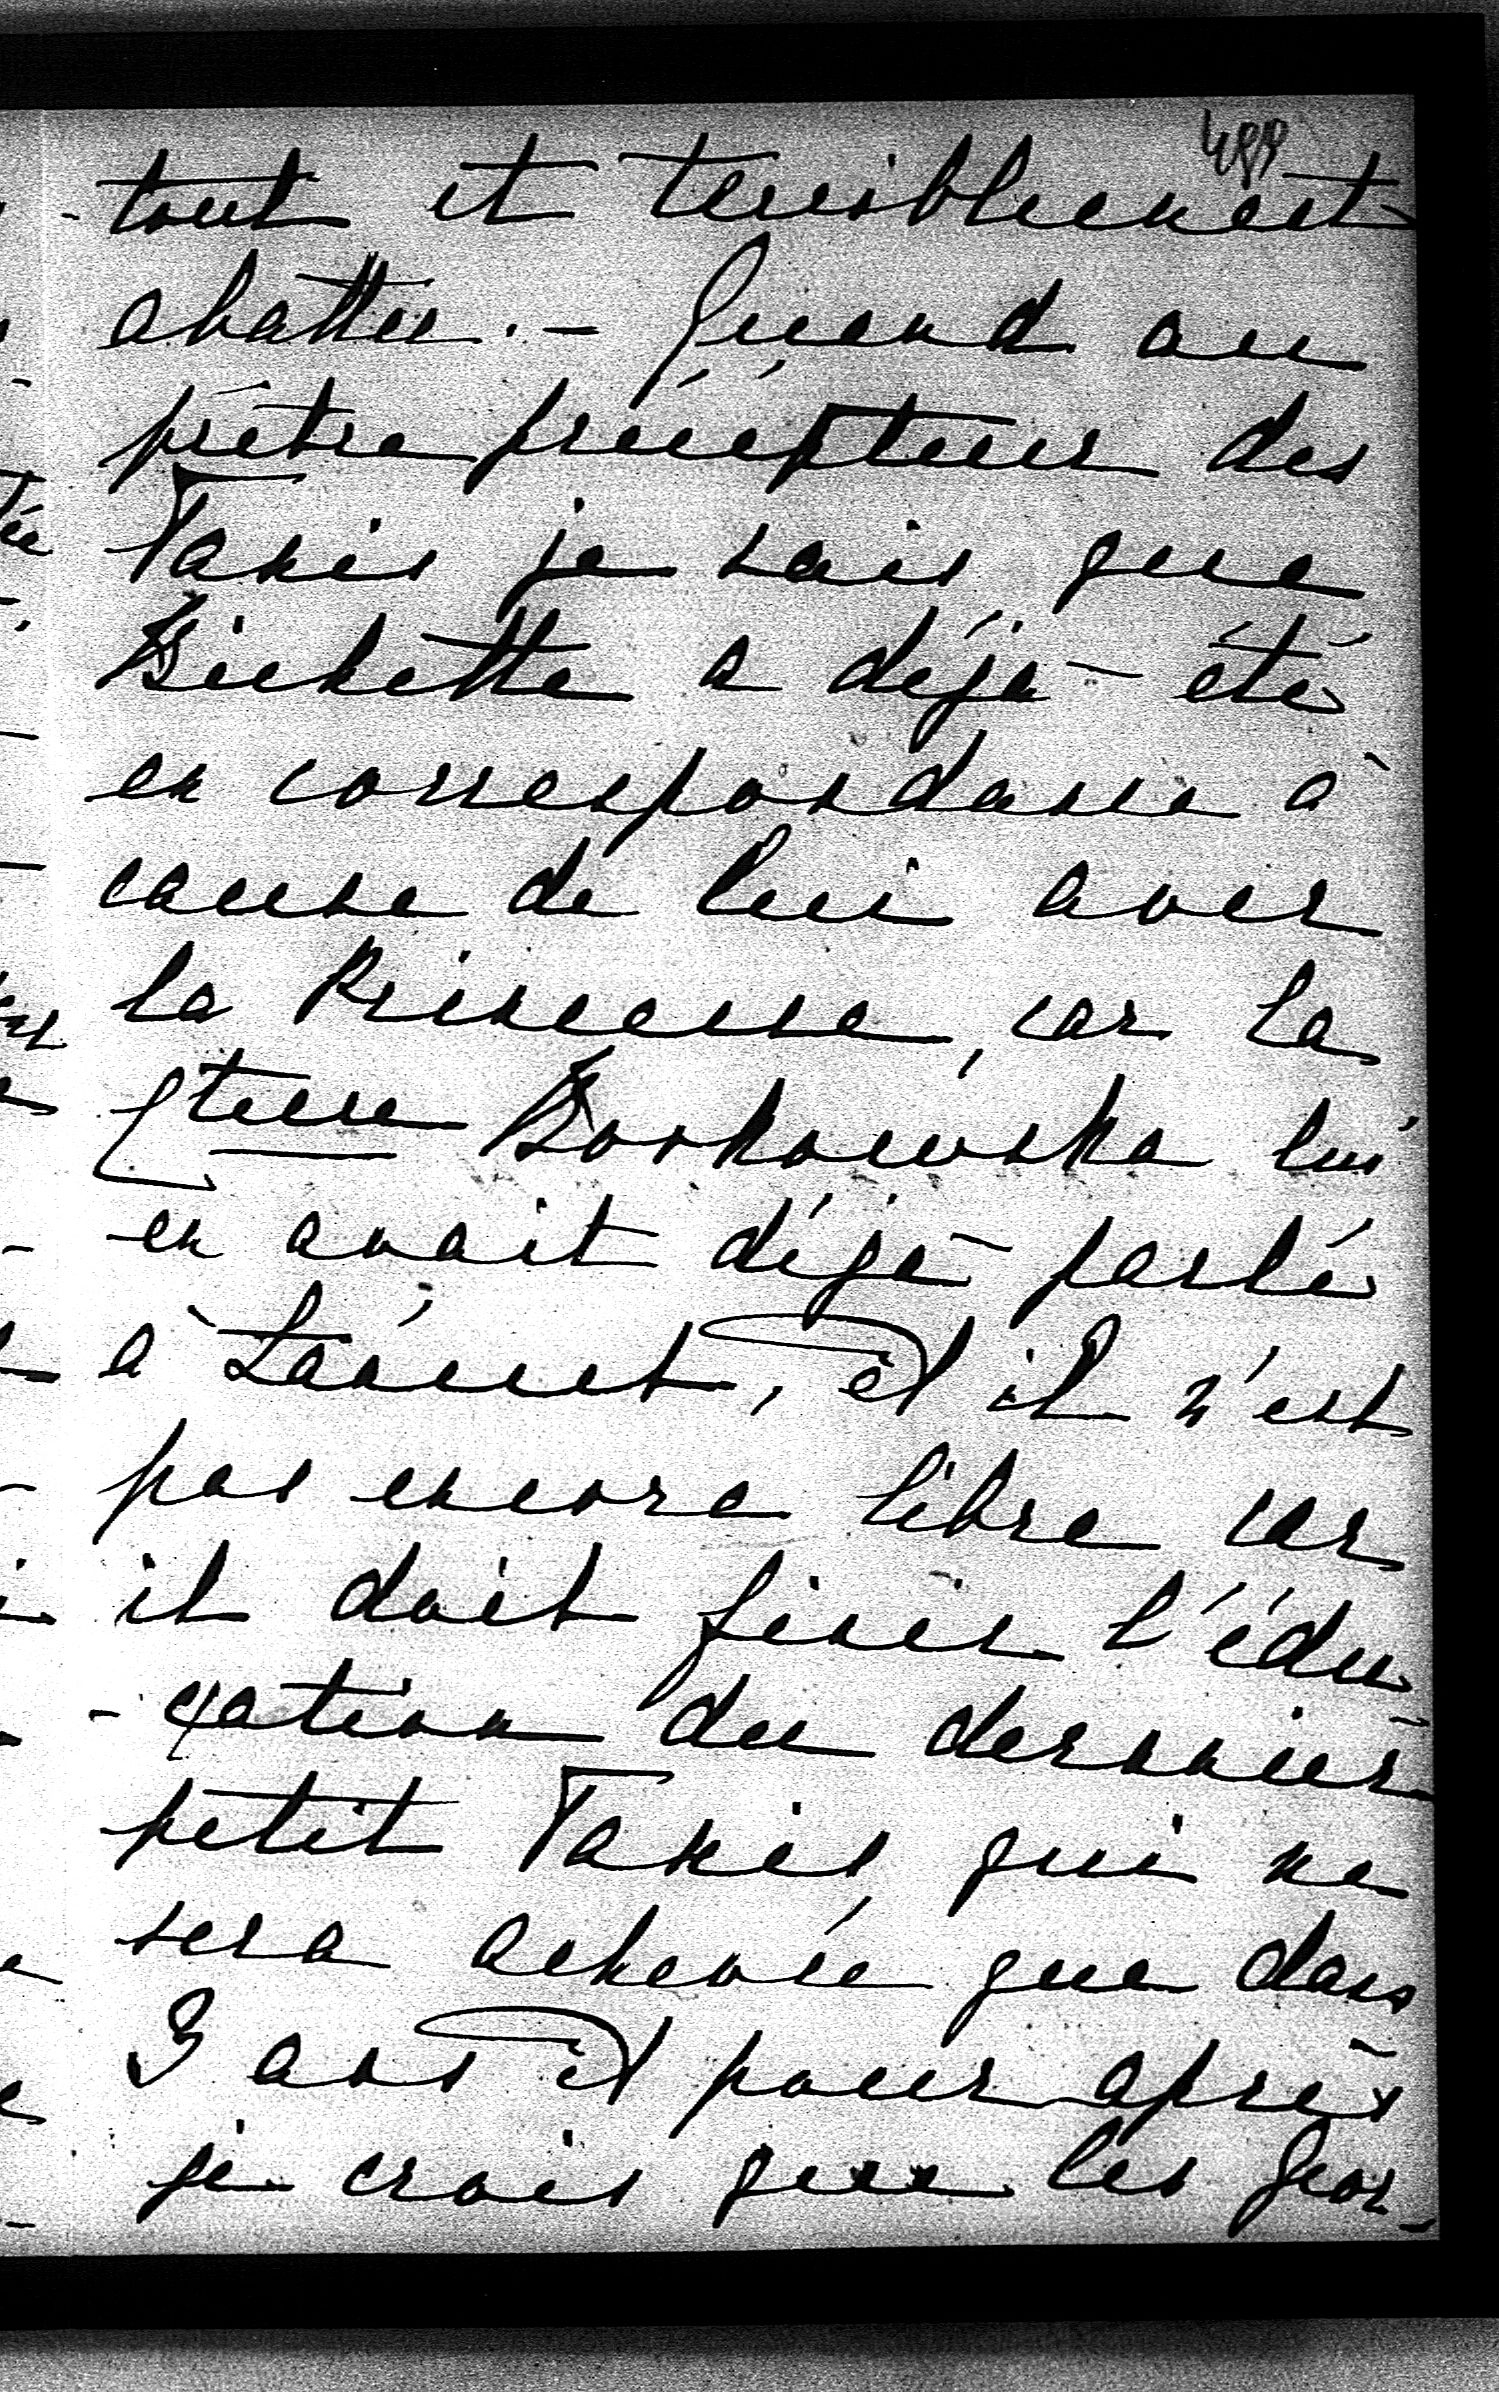 -tout et terriblement
abattu. - Quand au
prêtre précépteur des
Taxis je sais que
Bichette a déja été
en correspondance à
cause de lui avec
la Princesse, car la
Ctesse Borkowska lui
en avait déjà parlé
à Łańcut, et il n'est
pas encore libre car
il doit finir l'édu
-cation du dernier
petit Taxis, qui ne
sera achevée que dans
3 ans et pour après
je crois que les